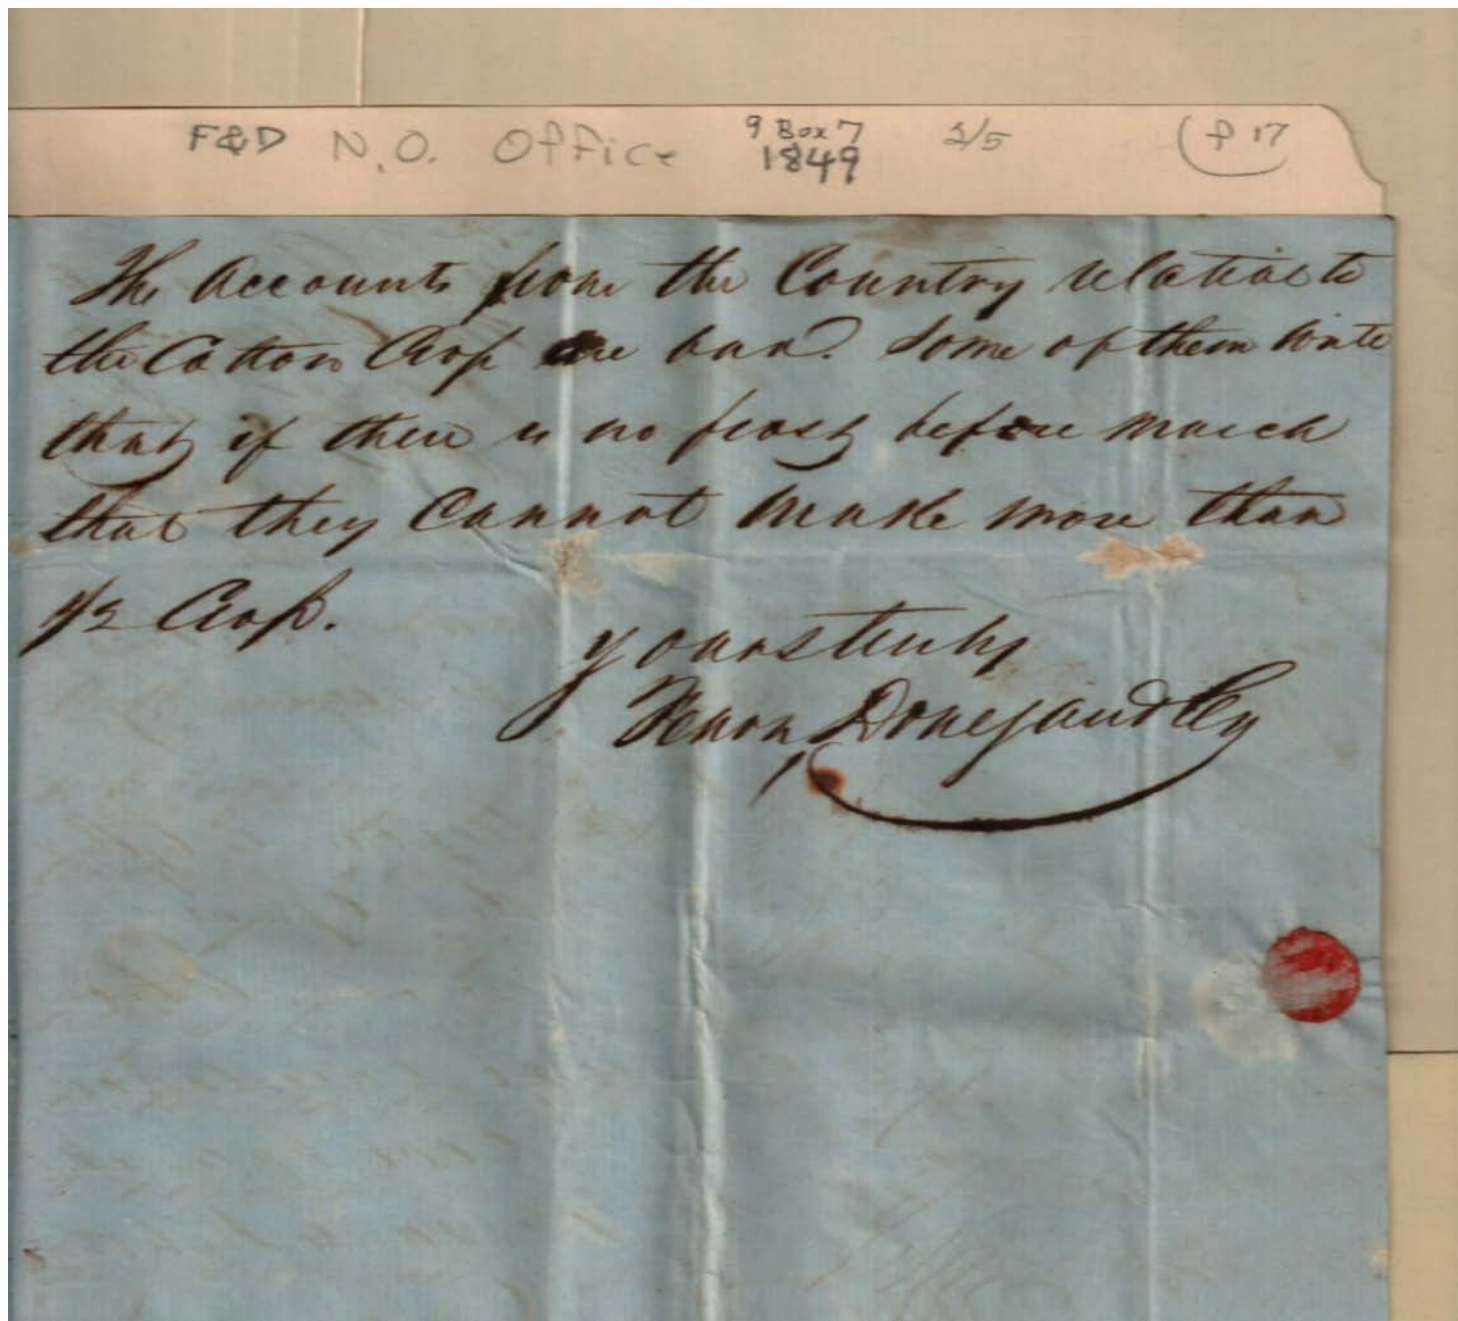 F&D N.O. Office 9 Box 7 1849 2/5 (f 17
The Accounts from the Country relative to
the Cotton Crop are bad. Some of them write
that if there is no frost before march
that they Cannot make more than
1/2 Crop.
yours truly
Fearn Donegan & Co